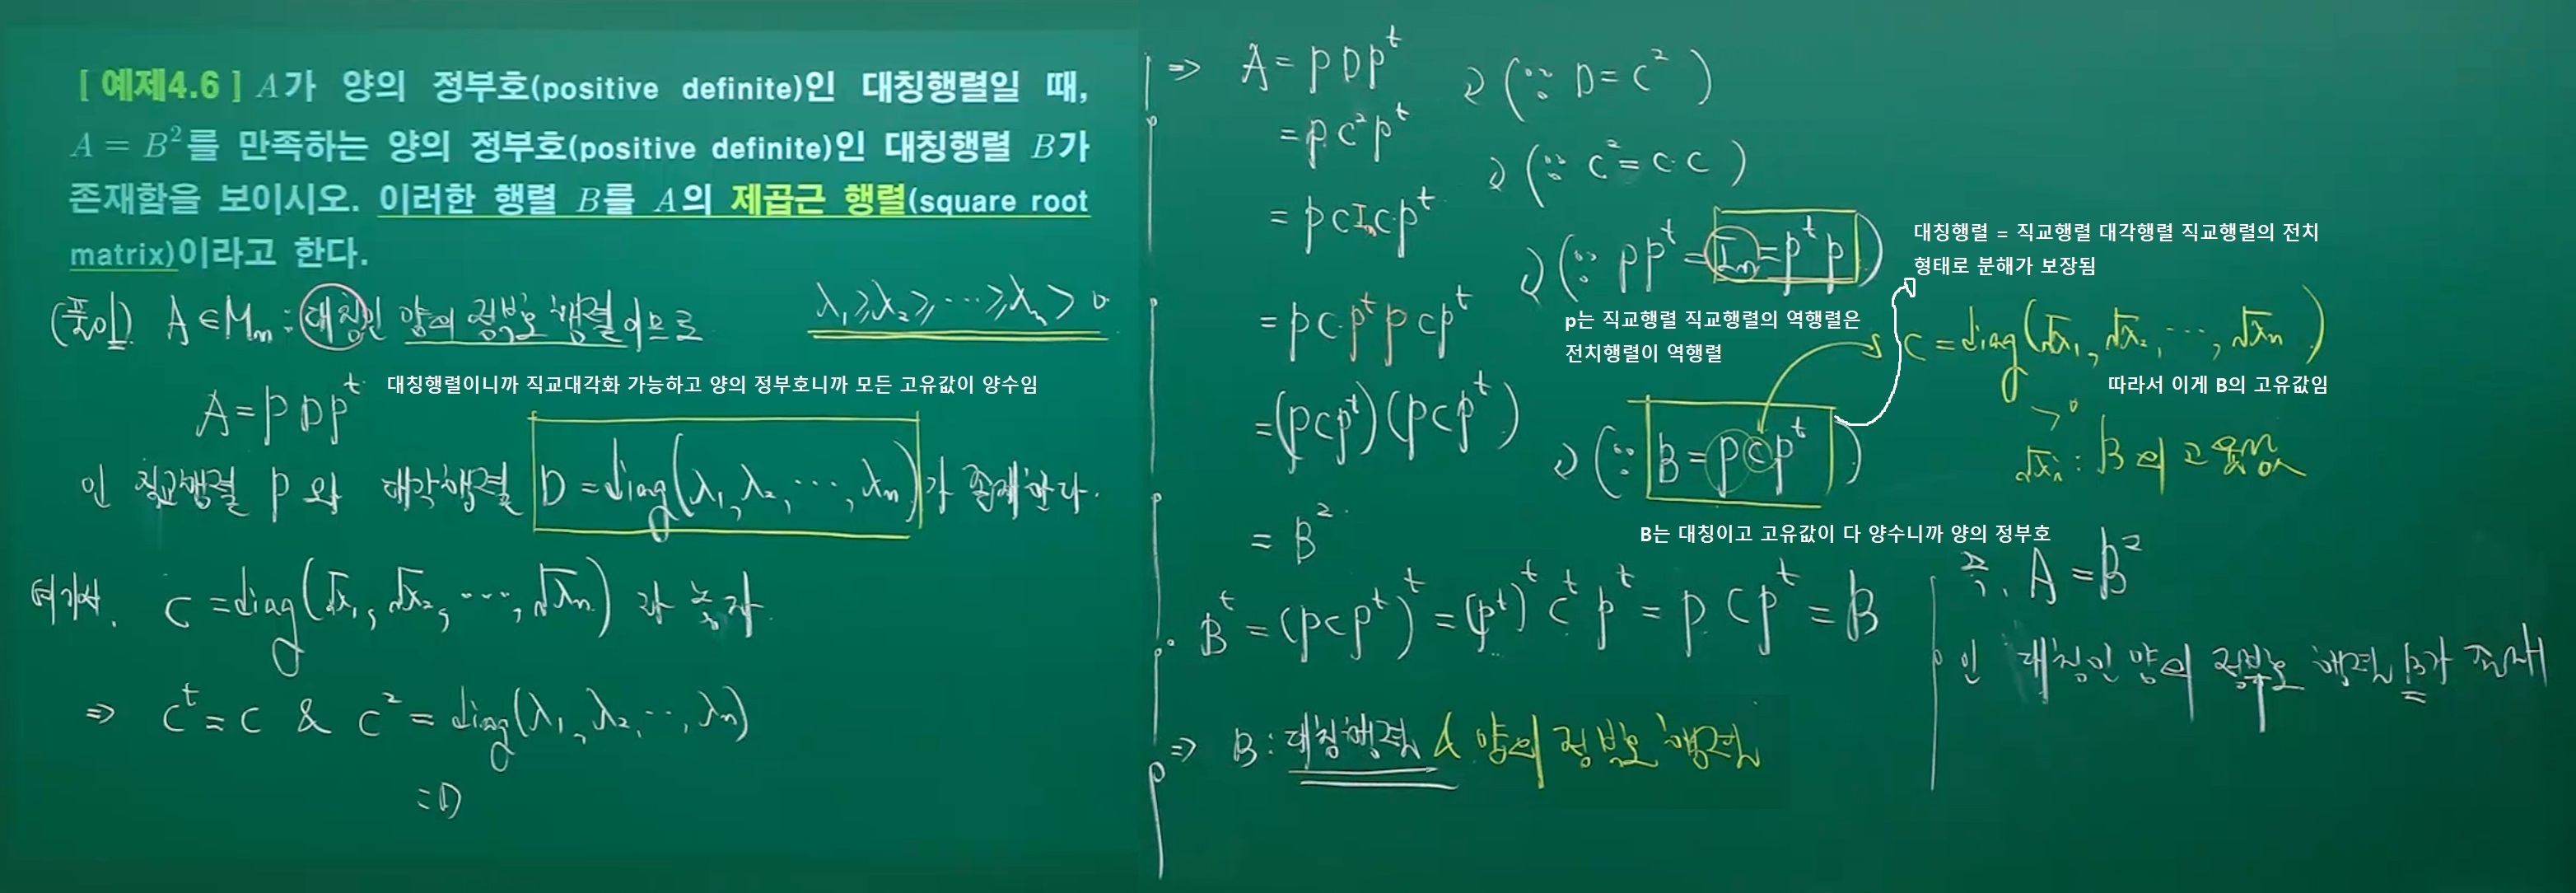 [ 예제4.6 ] A가 양의 정부호(positive definite)인 대칭행렬일 때,
A = B²를 만족하는 양의 정부호(positive definite)인 대칭행렬 B가
존재함을 보이시오. 이러한 행렬 B를 A의 제곱근 행렬(square root
matrix)이라고 한다.
(풀이) A∈Mₙ : 대칭인 양의 정부호 행렬이므로
λ₁≥λ₂≥⋯≥λₙ > 0
A = PDPᵗ
대칭행렬이니까 직교대각화 가능하고 양의 정부호니까 모든 고유값이 양수임
인 직교행렬 P와 대각행렬 D = diag(λ₁, λ₂, ⋯, λₙ)가 존재한다.
여기서. C = diag(√λ₁, √λ₂, ⋯, √λₙ) 라 놓자.
⇒ Cᵗ = C & C² = diag(λ₁, λ₂, ⋯, λₙ)
= D
⇒ A = PDPᵗ
(∵ D = C²)
= PC²Pᵗ
(∵ C² = C·C)
= PCIₙCPᵗ
(∵ PPᵗ = Iₙ = PᵗP)
대칭행렬 = 직교행렬 대각행렬 직교행렬의 전치
형태로 분해가 보장됨
p는 직교행렬 직교행렬의 역행렬은
전치행렬이 역행렬
= PC·PᵗPCPᵗ
C = diag(√λ₁, √λ₂, ⋯, √λₙ)
따라서 이게 B의 고유값임
= (PCPᵗ)(PCPᵗ)
(∵ B = PCPᵗ)
> 0
√λᵢ : B의 고윳값
= B²
B는 대칭이고 고유값이 다 양수니까 양의 정부호
Bᵗ = (PCPᵗ)ᵗ = (Pᵗ)ᵗCᵗPᵗ = PCPᵗ = B
⇒ B : 대칭행렬 & 양의 정부호 행렬
즉, A = B²
인 대칭인 양의 정부호 행렬 B가 존재